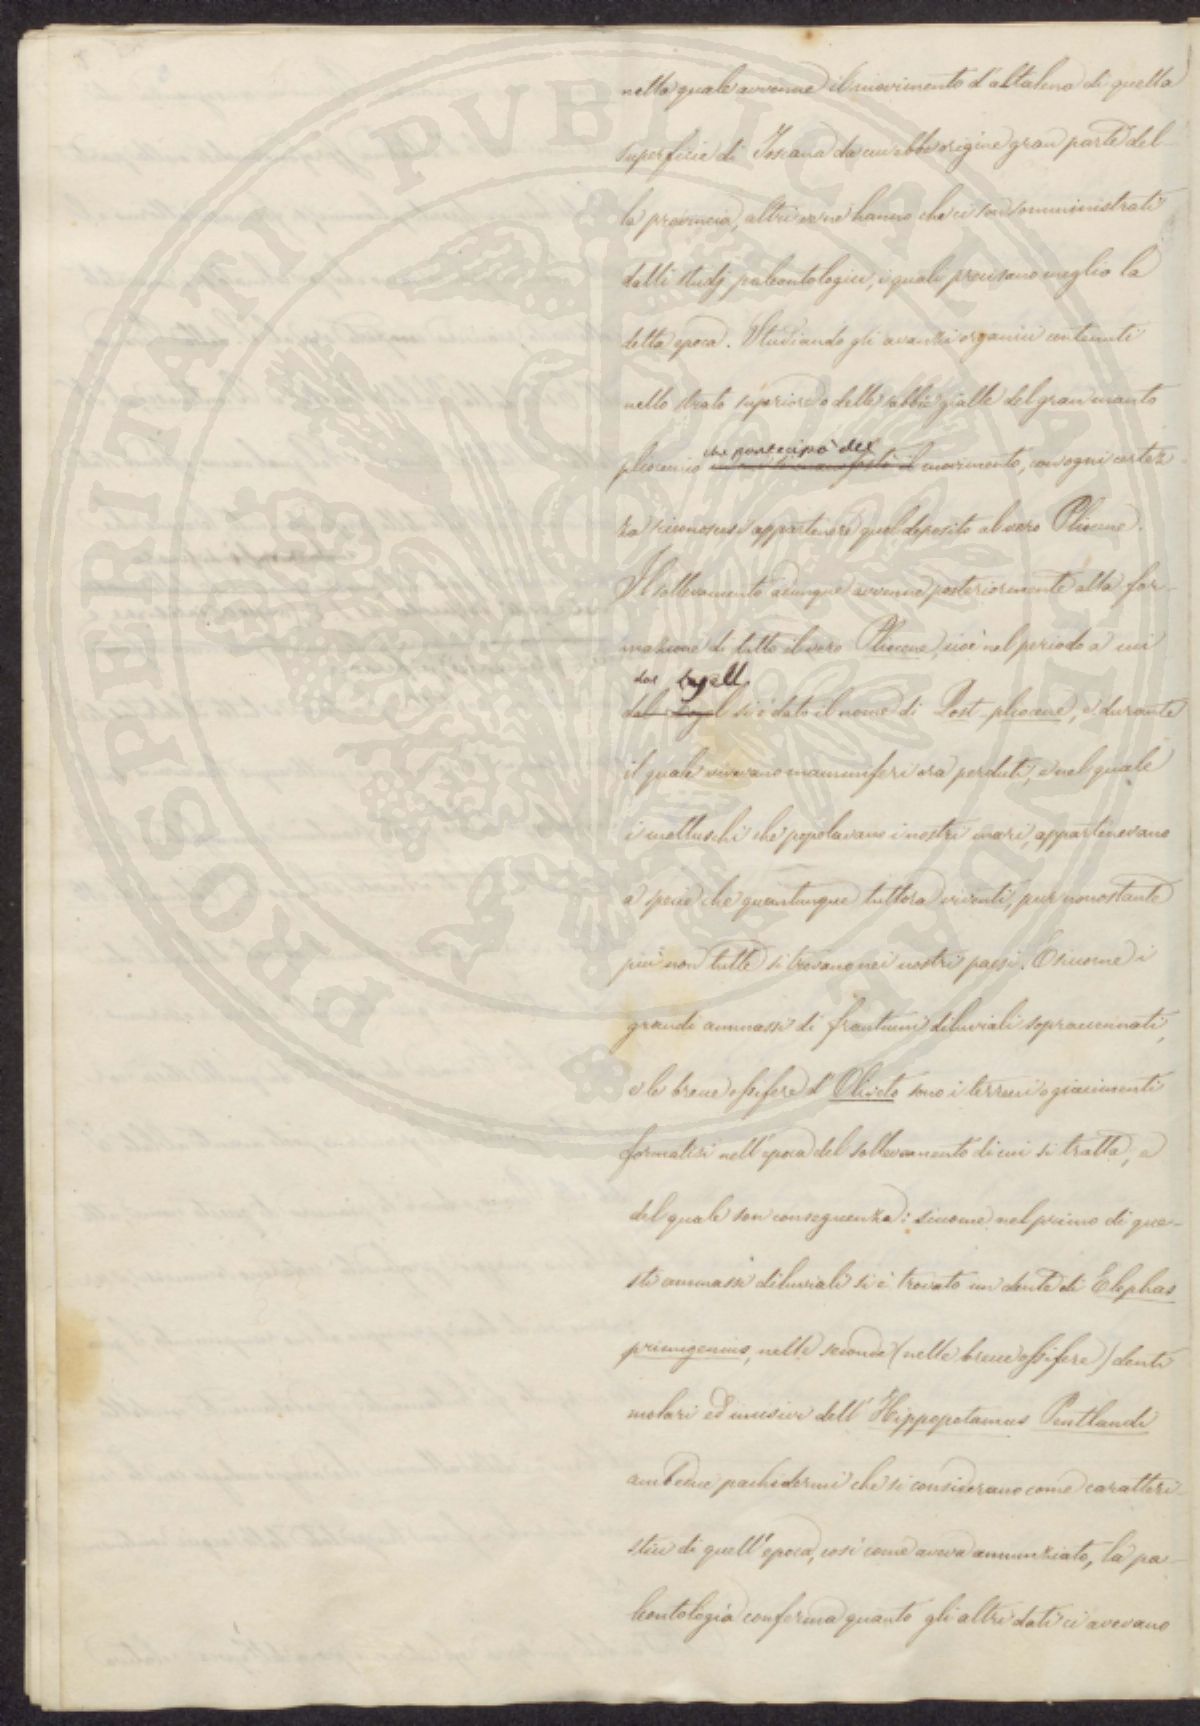 PROSPERITATI PVBLICAE AVGENDAE
nella quale avvenne il movimento d'altalena di quella
superficie di Toscana da cui ebbe origine gran parte del-
la provincia, altri ve ne hanno che ci son somministrati
dalli studj paleontologici, i quali precisano meglio la
detta epoca. Studiando gli avanzi organici contenuti
nello strato superiore o delle sabbie gialle del gran manto
che partecipò del
pliocenico il movimento, con ogni certez-
za riconoscesi appartenere quel deposito al vero Pliocene.
Il sollevamento dunque avvenne posteriormente alla for-
mazione di tutto il vero Pliocene, cioè nel periodo a cui
dal Lyell
dal si è dato il nome di Post-pliocene, e durante
il quale vivevano mammiferi ora perduti, e nel quale
i molluschi che popolavano i nostri mari, appartenevano
a specie che quantunque tuttora viventi, pur nonostante
più non tutte si trovano nei nostri paesi. E siccome i
grandi ammassi di frantumi diluviali sopraccennati,
e le brecce ossifere d'Oliveto sono i terreni o giacimenti
formatisi nell'epoca del sollevamento di cui si tratta, e
del quale son conseguenza: siccome nel primo di que-
sti ammassi diluviali si è trovato un dente di Elephas
primigenius, nelle seconde (nelle brecce ossifere) denti
molari ed incisivi dell'Hippopotamus Pentlandi
ambedue pachidermi che si considerano come caratteri-
stici di quell'epoca, così come aveva annunziato, la pa-
leontologia conferma quanto gli altri dati ci avevano